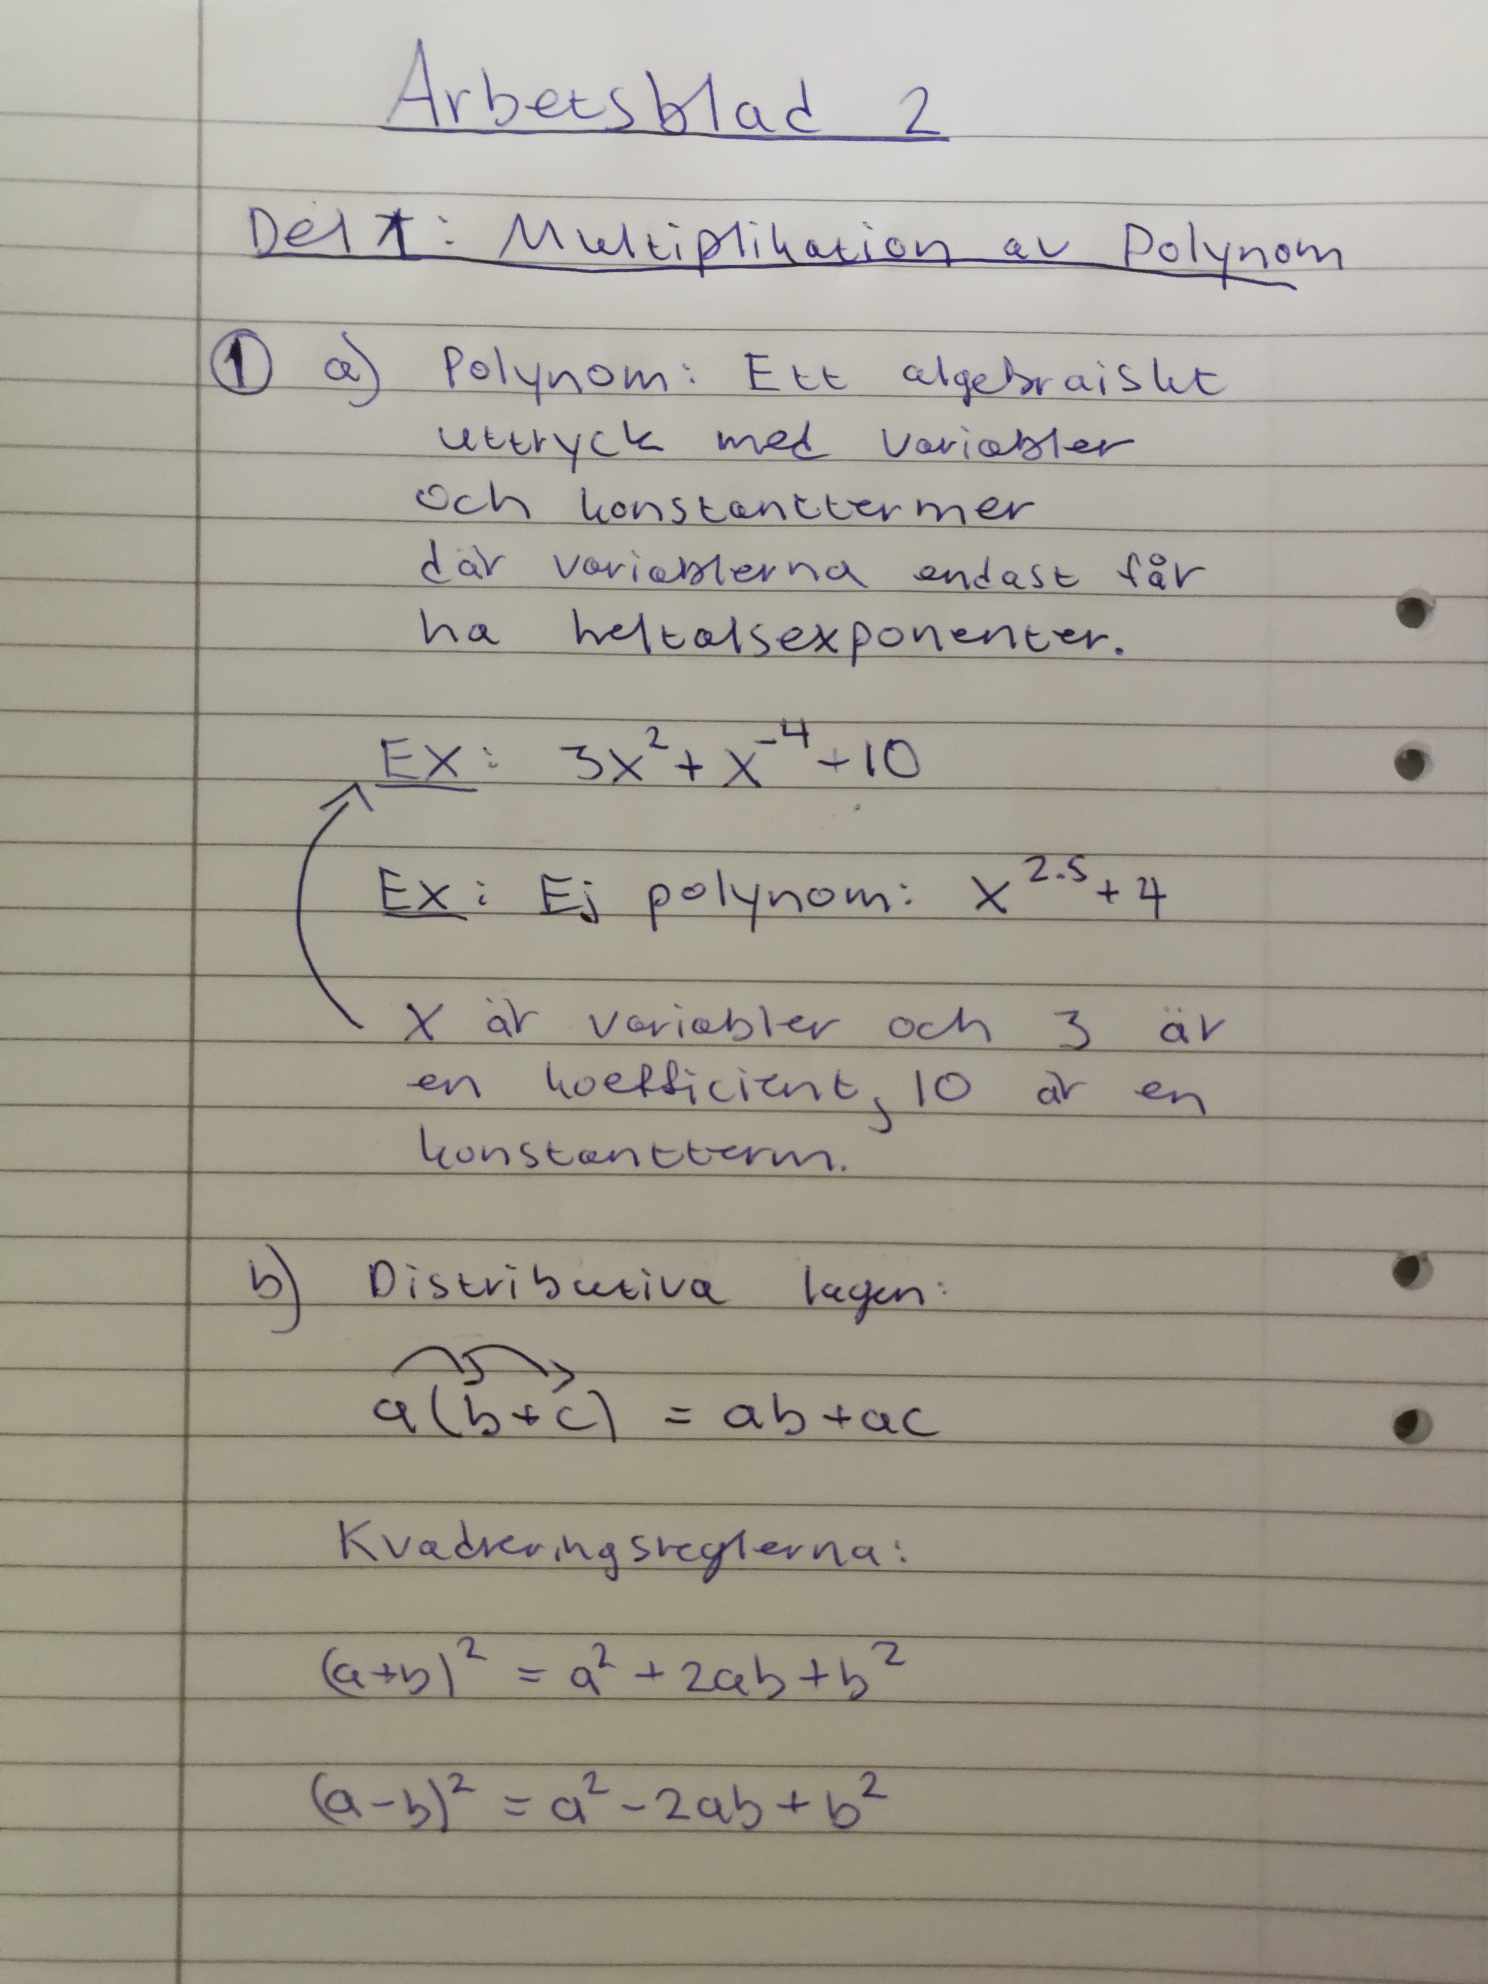 Arbetsblad 2
Del 1: Multiplikation av Polynom
① a) Polynom: Ett algebraiskt
uttryck med variabler
och konstanttermer
där variablerna endast får
ha heltalsexponenter.
Ex: 3x² + x⁻⁴ + 10
Ex: Ej polynom: x^2.5 + 4
X är variabler och 3 är
en koefficient, 10 är en
konstantterm.
b) Distributiva lagen:
a(b+c) = ab+ac
Kvadreringsreglerna:
(a+b)² = a² + 2ab + b²
(a-b)² = a² - 2ab + b²